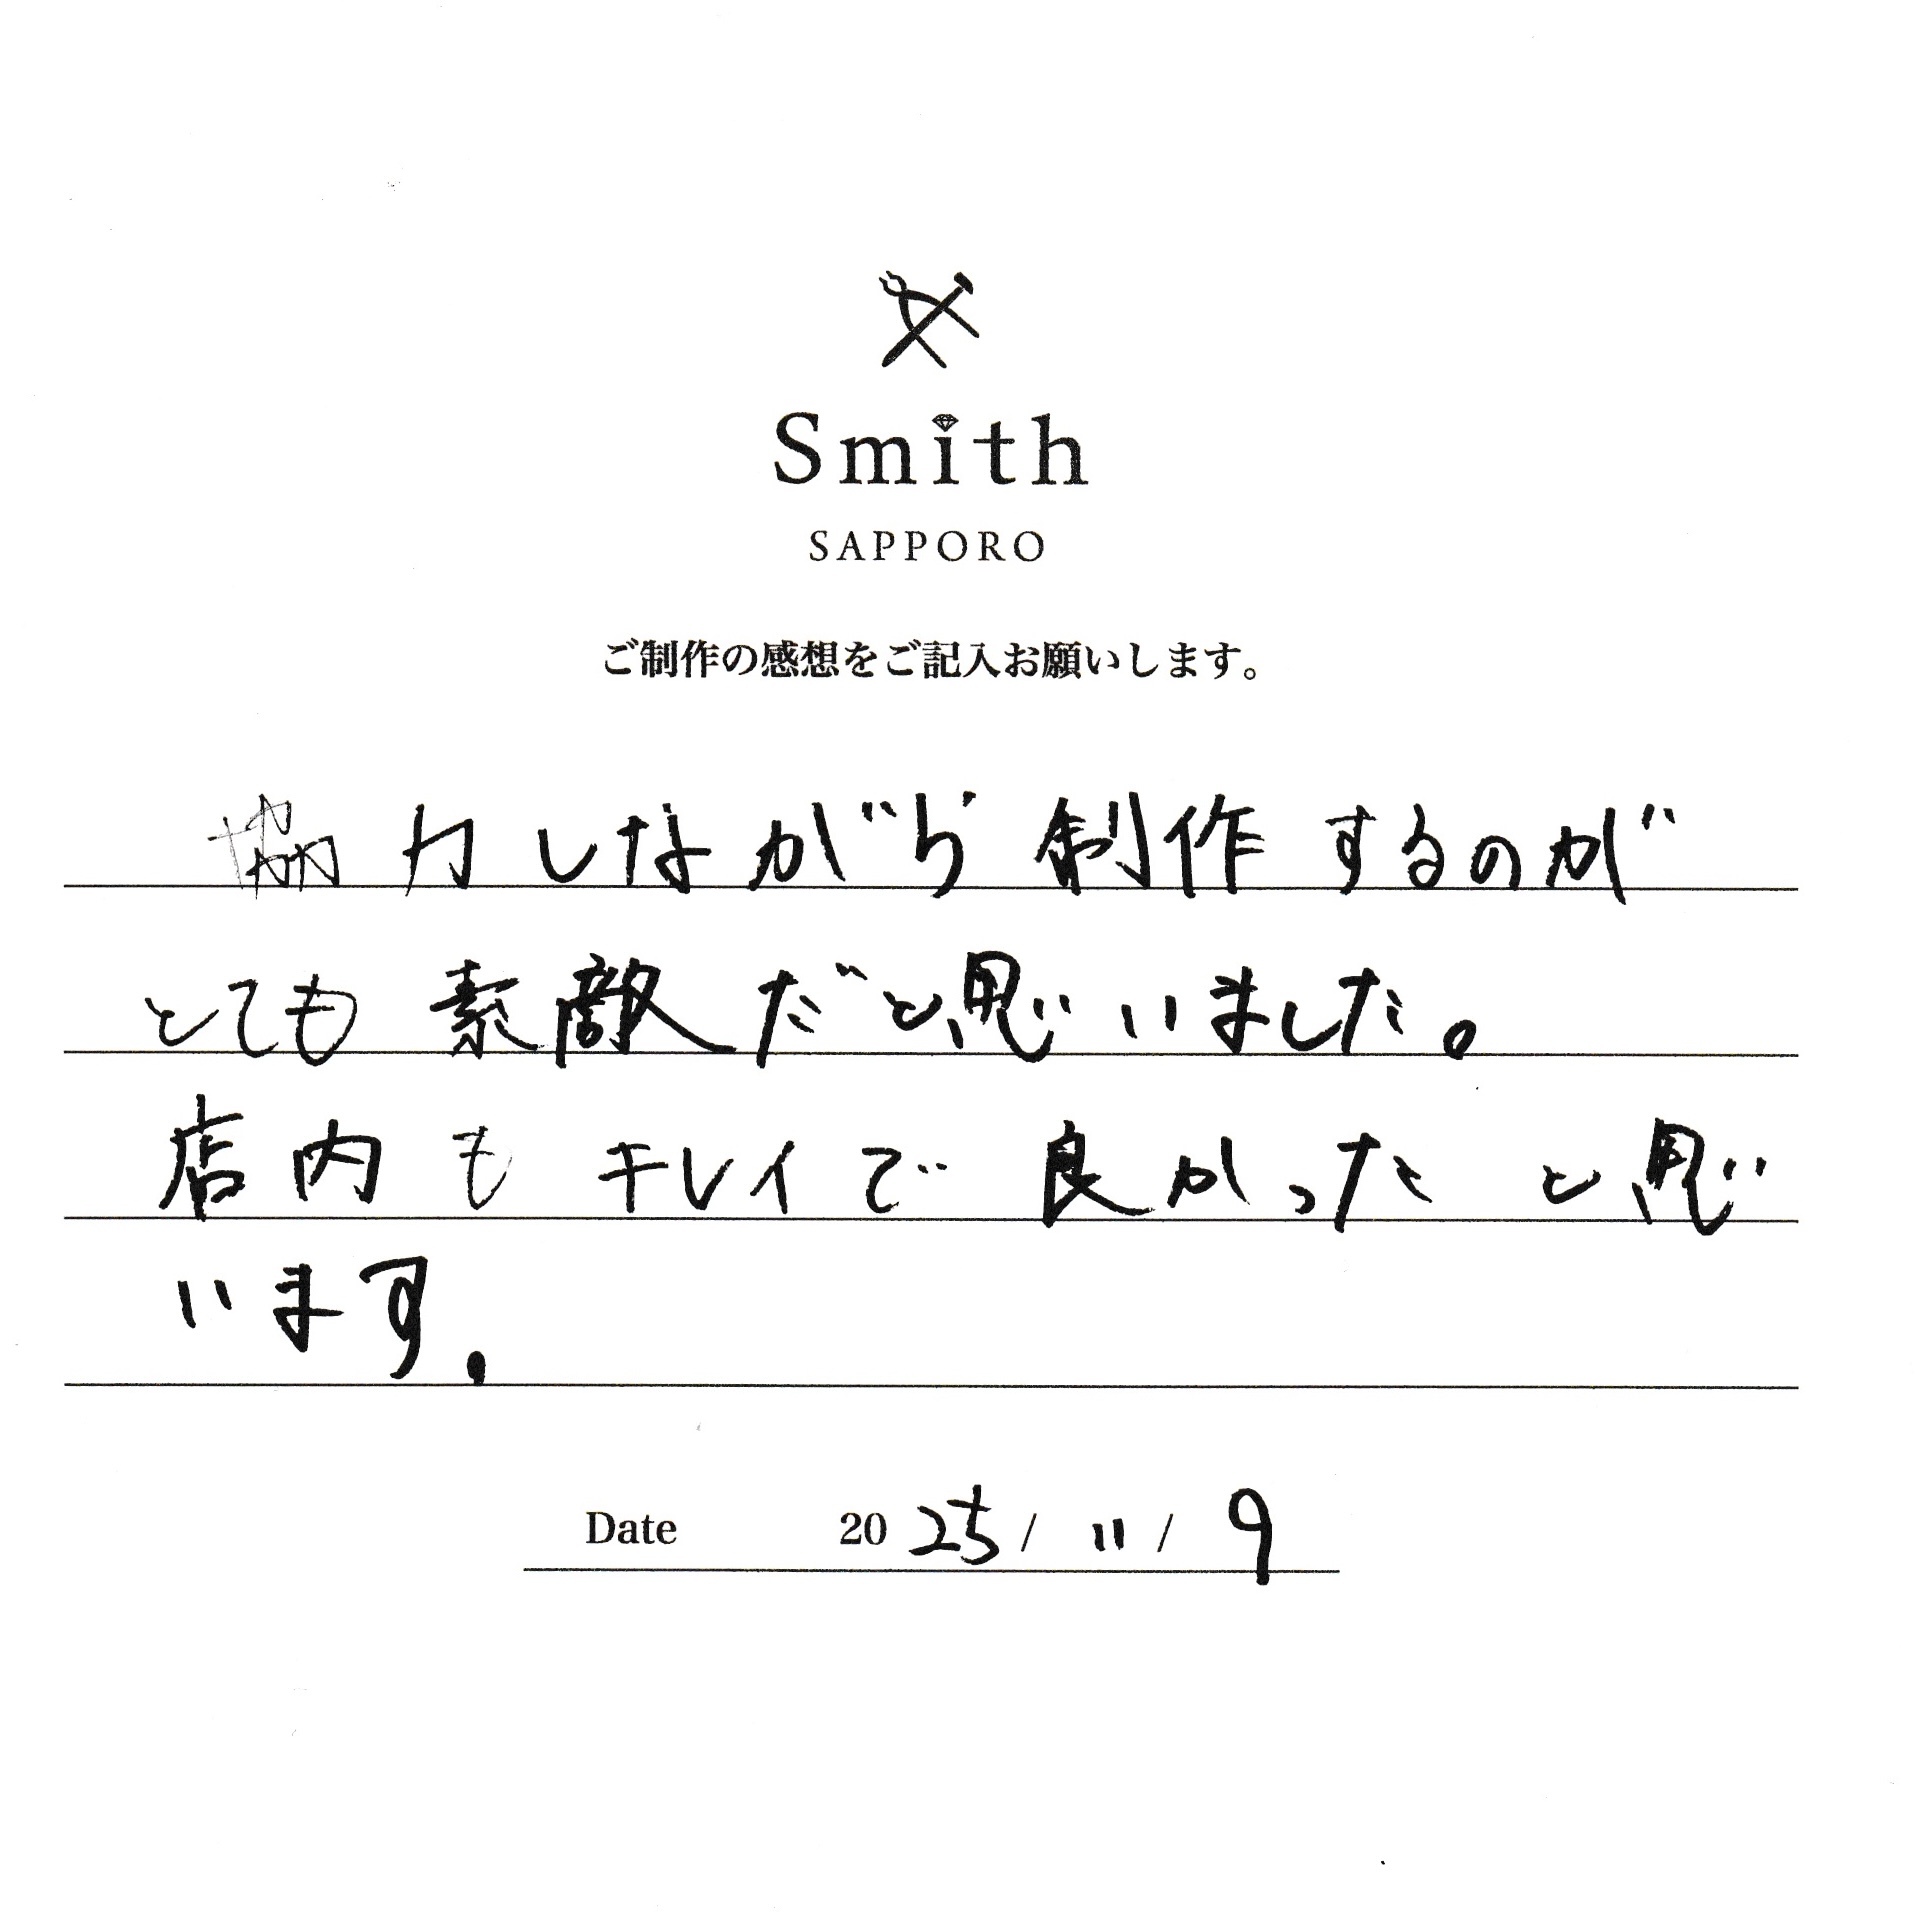 Smith
SAPPORO
ご制作の感想をご記入お願いします。
協力しながら制作するのが
とても素敵だと思いました。
店内もキレイで良かったと思
います。
Date 2025/11/9